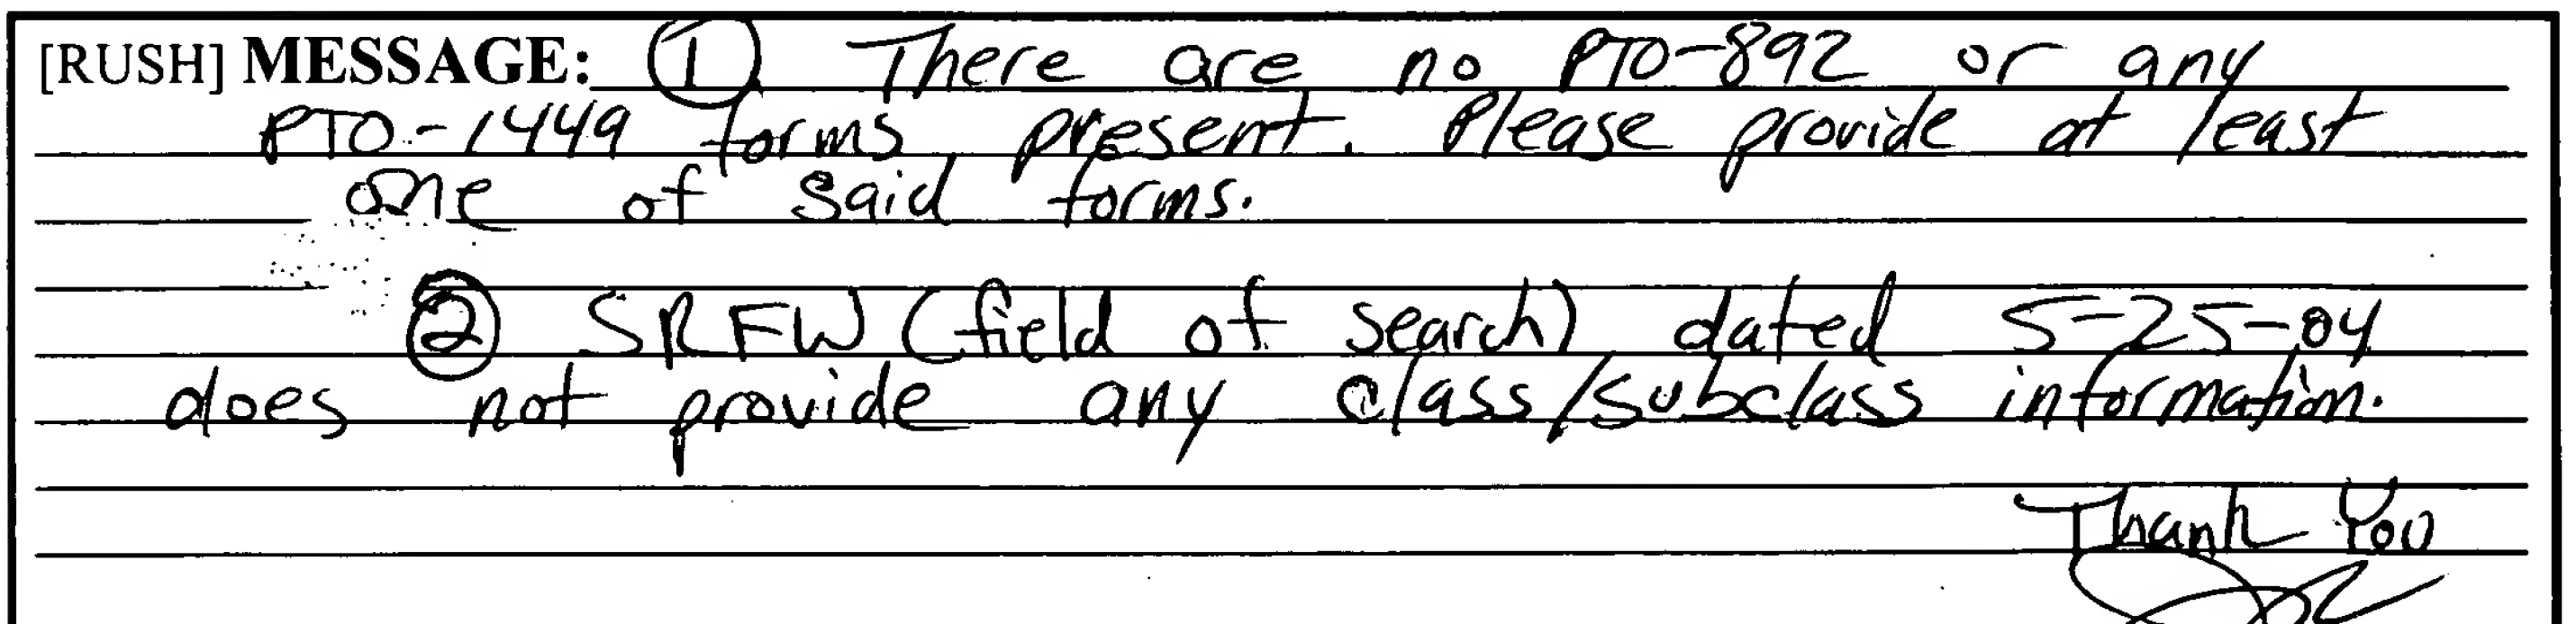 [RUSH] MESSAGE: ① There are no PTO-892 or any
PTO-1449 forms present. Please provide at least
one of said forms.
② SRFW (field of search) dated 5-25-04
does not provide any class/subclass information.
Thank You